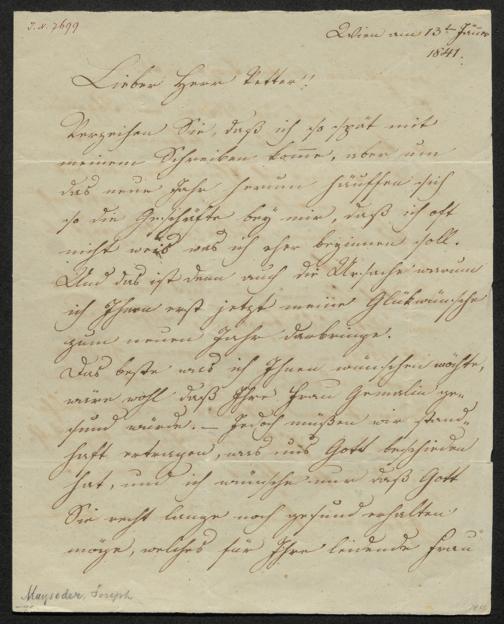 J.N. 7699
Wien am 13t Jäner
1841.
Lieber Herr Vetter!!
Verzeihen Sie, daß ich so spät mit
meinem Schreiben komme, aber um
das neue Jahr herum häuffen sich
so die Geschäfte bey mir, daß ich oft
nicht weis was ich eher beginnen soll.
Und das ist denn auch die Ursache warum
ich Ihnen erst jetzt meine Glükwünsche
zum neuen Jahr darbringe.
Das beste was ich Ihnen wünschen möchte,
wäre wohl daß Ihre Frau Gemalin ge-
sund würde. – Jedoch müßen wir stand-
haft ertragen, was uns Gott beschieden
hat, und ich wünsche nur daß Gott
Sie recht lange noch gesund erhalten
möge, welches für Ihre leidende Frau
Mayseder, Joseph